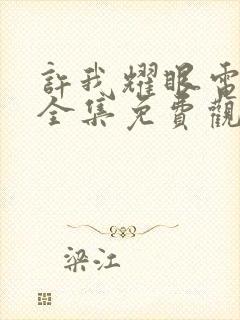 許我耀眼電
全集免費觀
梁江